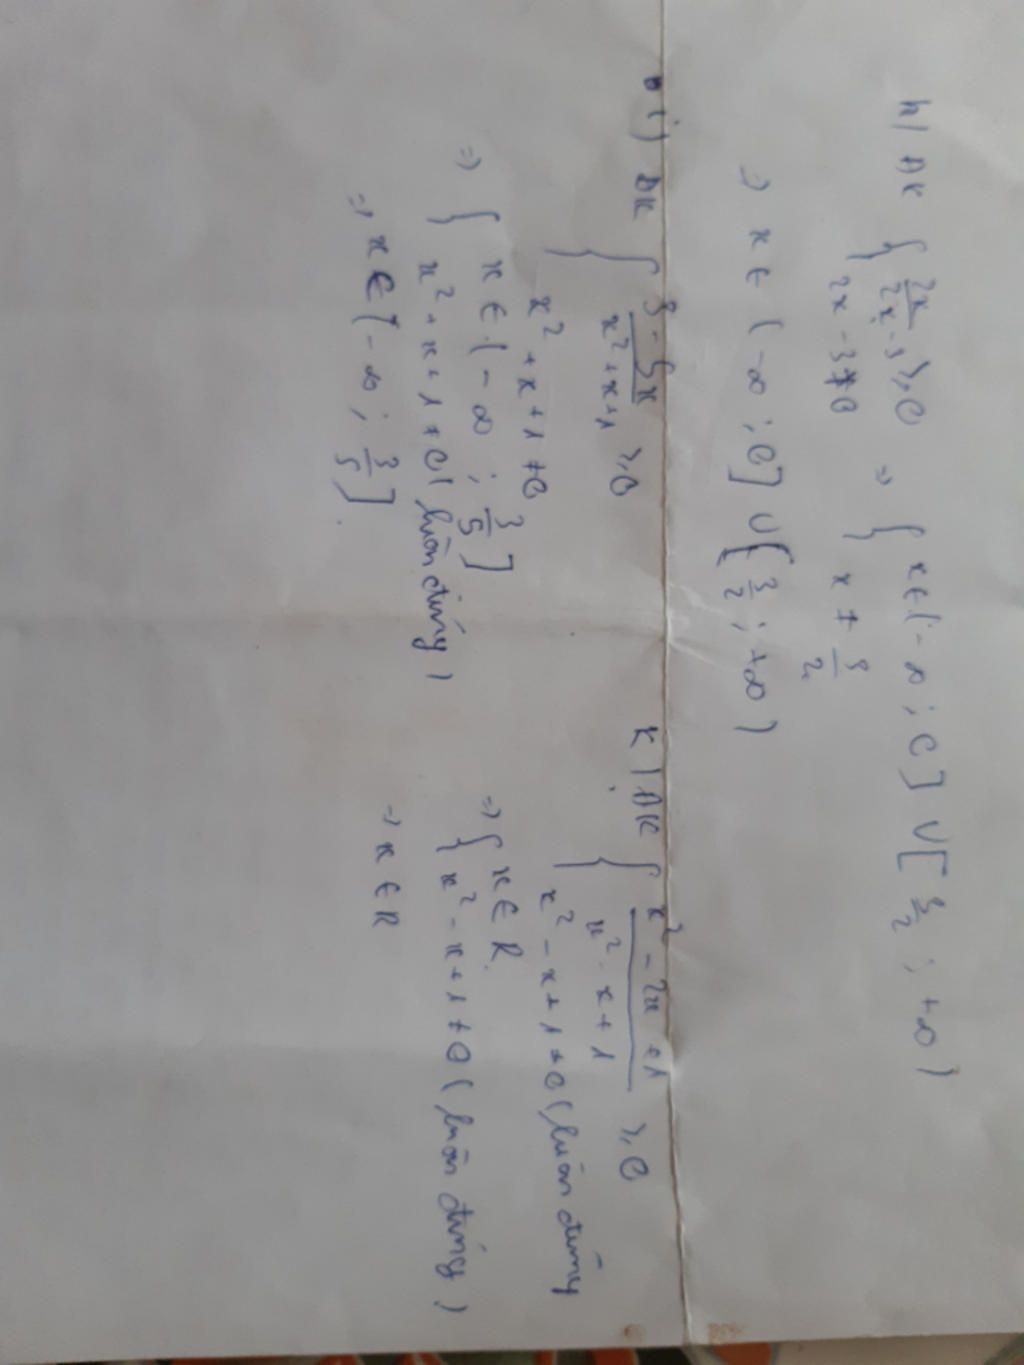 h) ĐK { 2x/2x-3 ≥ 0
2x - 3 ≠ 0
=> { x ∈ (-∞; 0] ∪ [3/2; +∞)
x ≠ 3/2
=> x ∈ (-∞; 0] ∪ ( 3/2; +∞)
i) ĐK { 3-5x/x²+x+1 ≥ 0
x² + x + 1 ≠ 0
=> { x ∈ (-∞; 3/5]
x² + x + 1 ≠ 0 (luôn đúng)
=> x ∈ (-∞; 3/5].
k) ĐK { x² - 2x + 1/x² - x + 1 ≥ 0
x² - x + 1 ≠ 0 (luôn đúng
=> { x ∈ R
x² - x + 1 ≠ 0 (luôn đúng)
=> x ∈ R